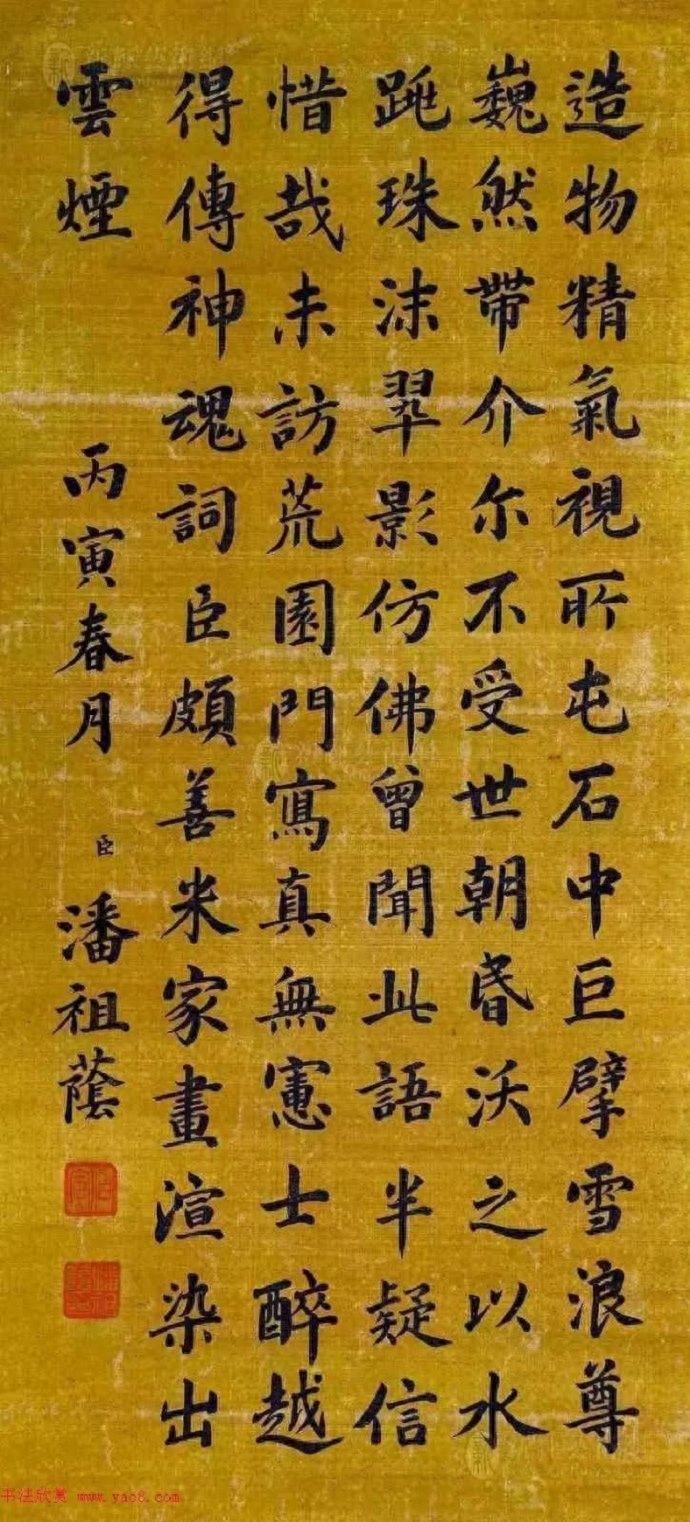 造物精氣視所屯石中巨擘雪浪尊
巍然帶介尔不受世朝昏沃之以水
跳珠沫翠影仿佛曾聞此語半疑信
惜哉未訪荒園門寫真無憲士醉越
得傳神魂詞臣頗善米家畫渲染出
雲煙
丙寅春月 臣 潘祖蔭
书法欣赏 www.yac8.com